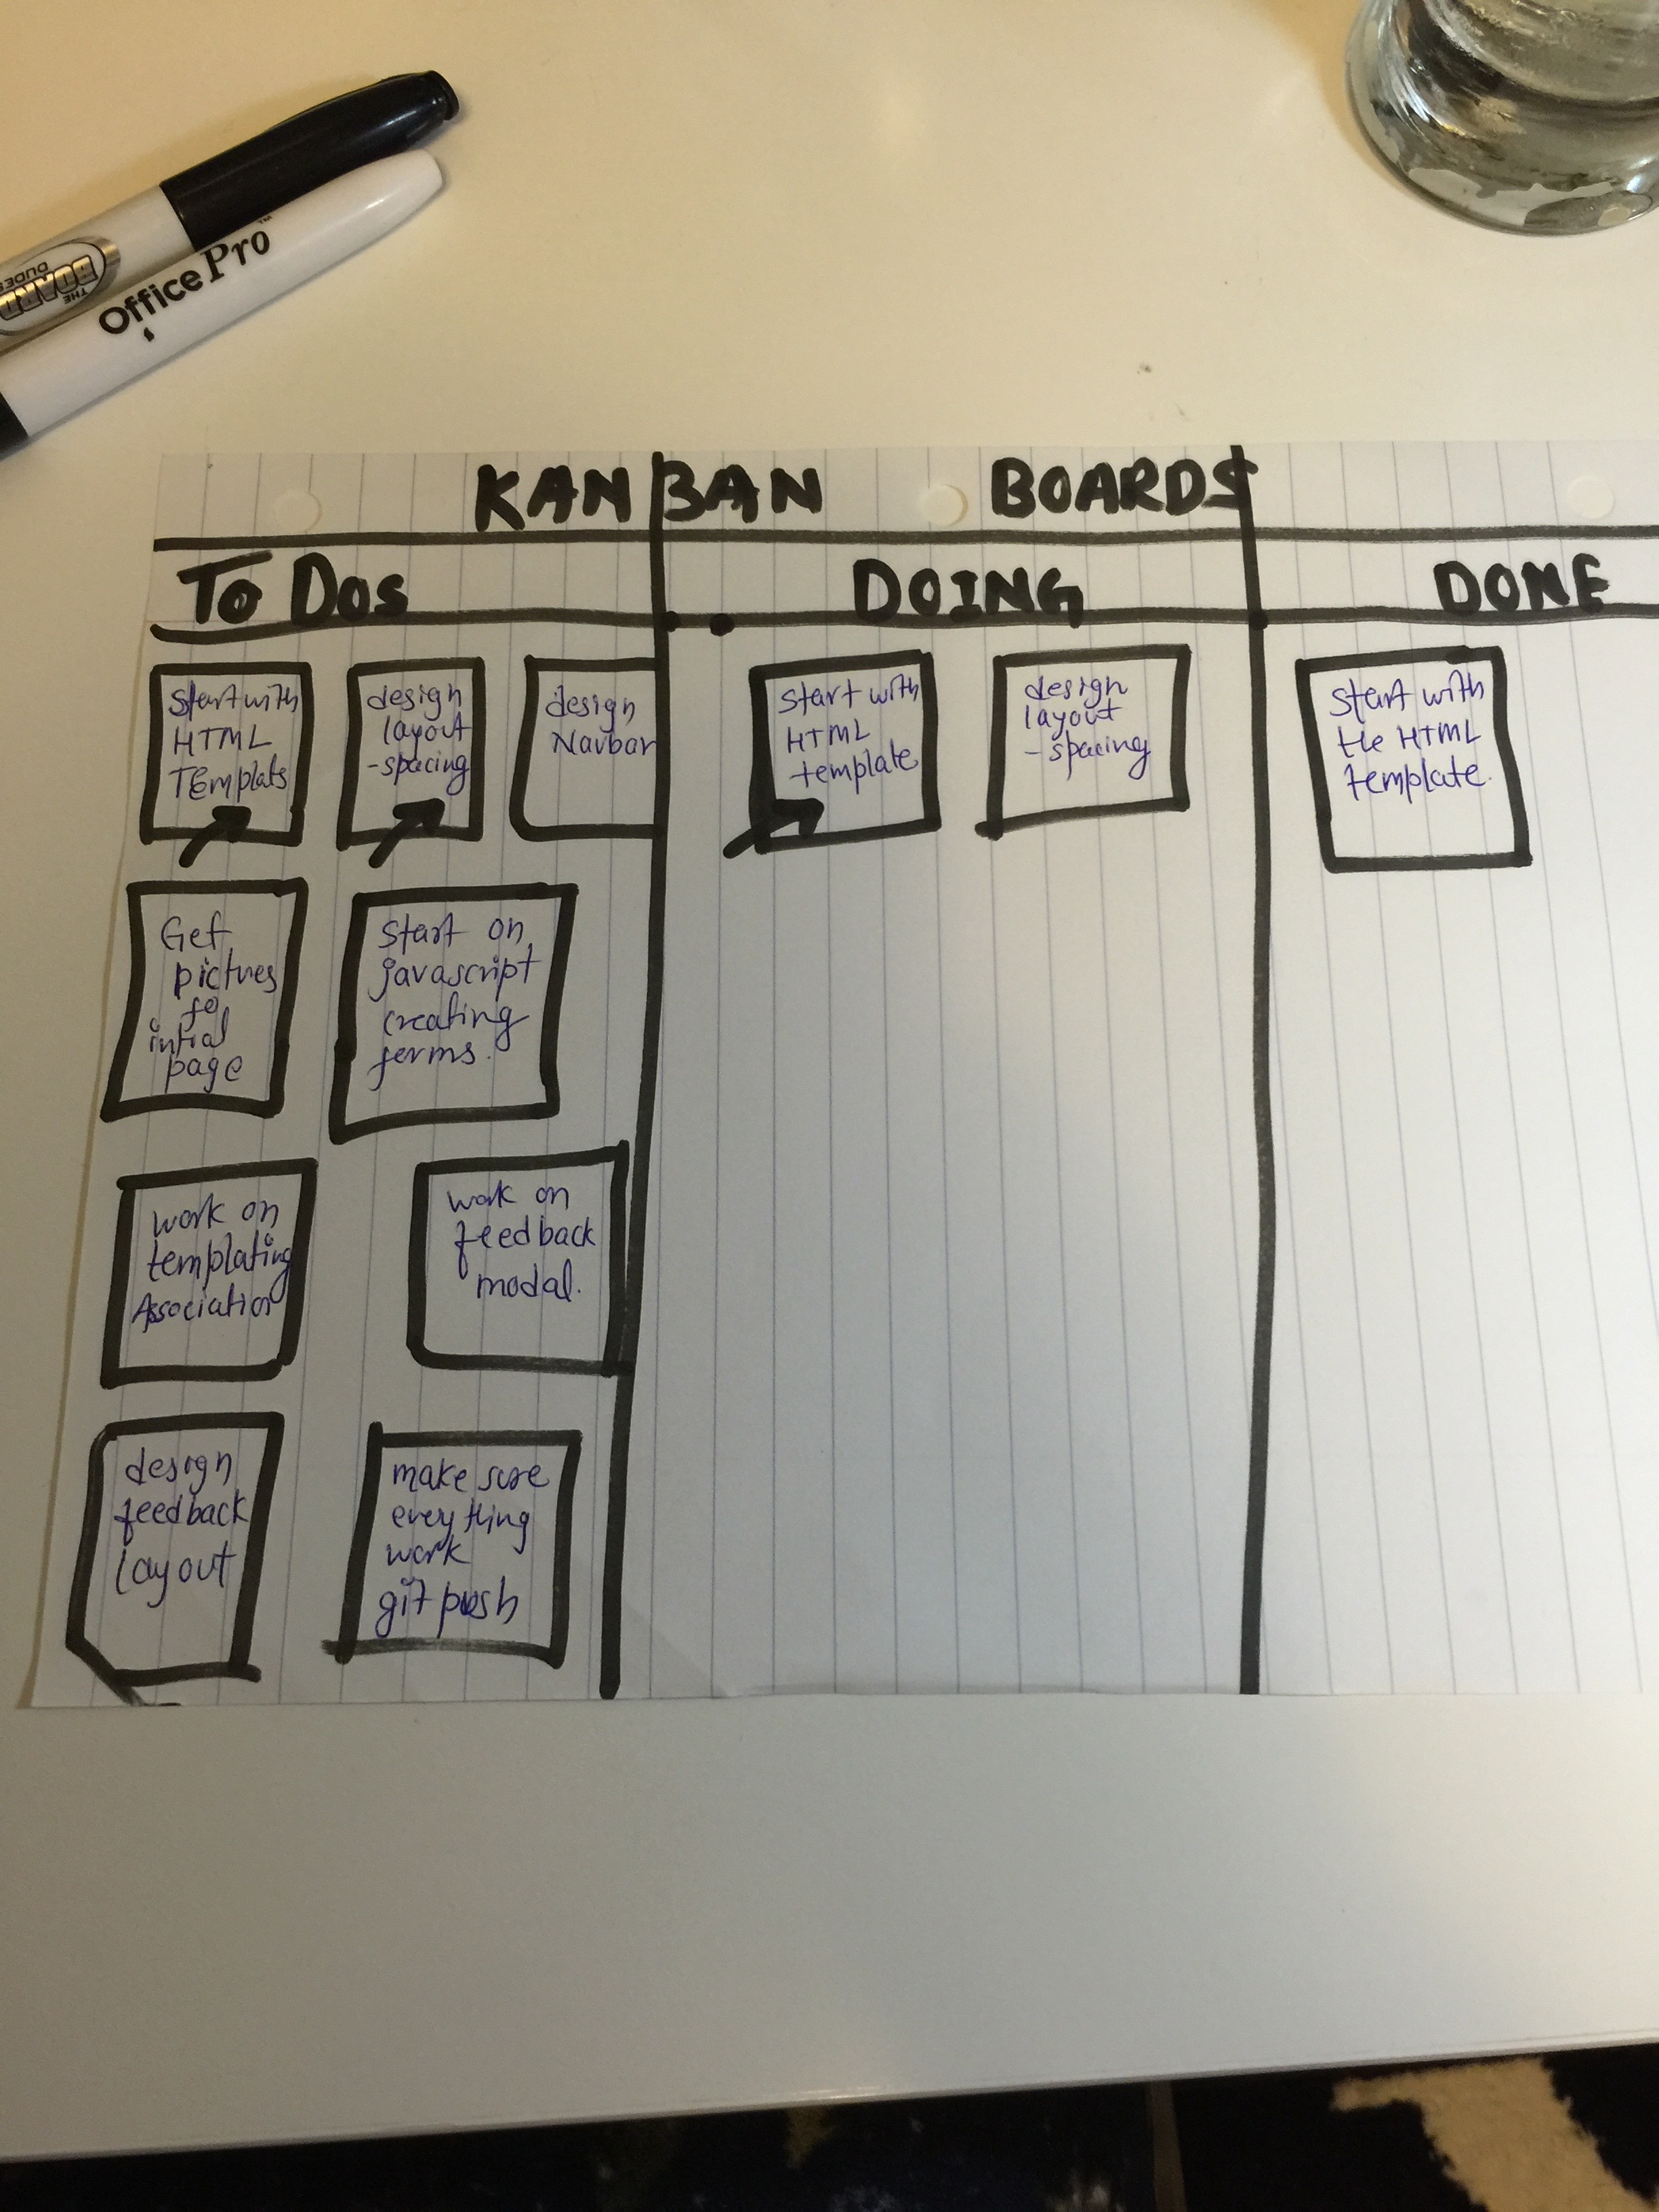 THE
BOARD
DUDES
OfficePro™
KANBAN BOARDS
To Dos
DOING
DONE
Start with
HTML
TEmplate
design
layout
-spacing
design
Navbar
Get
pictures
fo
intial
page
Start on
javascript
creating
forms.
work on
templating
Association
work on
feedback
modal.
design
feedback
layout
make sure
everything
work
git push
start with
HTML
template
design
layout
-spacing
start with
the HTML
template.